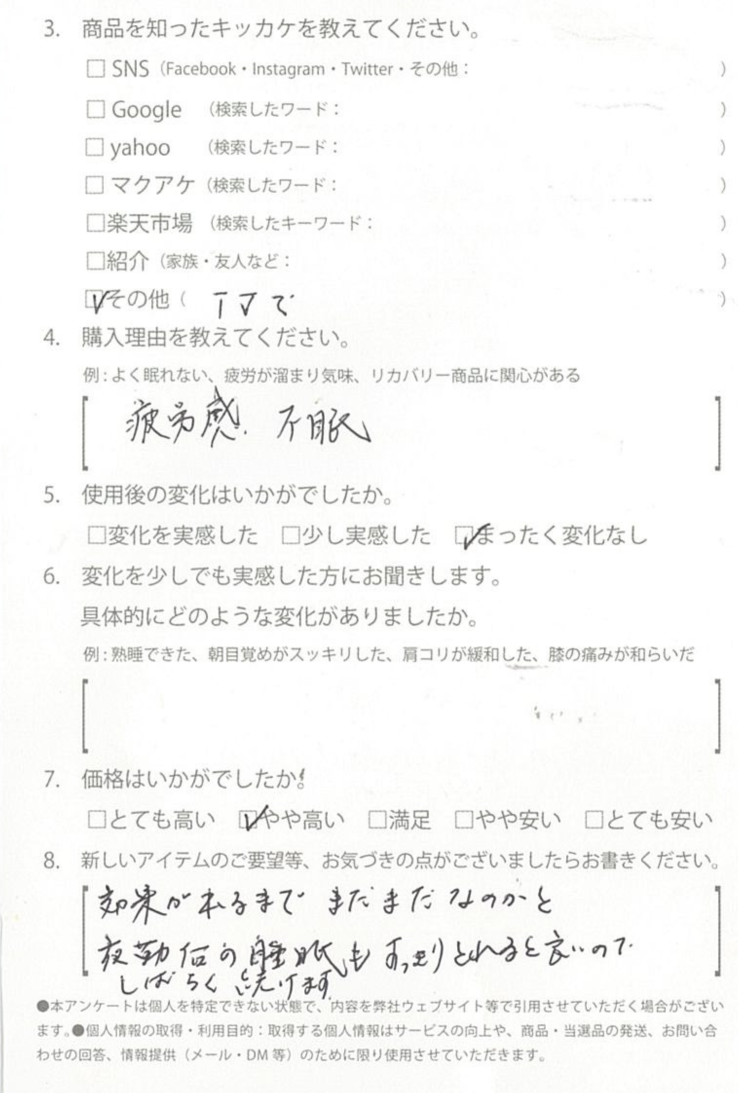 3. 商品を知ったキッカケを教えてください。
□ SNS（Facebook・Instagram・Twitter・その他： ）
□ Google （検索したワード： ）
□ yahoo （検索したワード： ）
□ マクアケ（検索したワード： ）
□楽天市場（検索したキーワード： ）
□紹介（家族・友人など： ）
☑その他（ TVで ）
4. 購入理由を教えてください。
例：よく眠れない、疲労が溜まり気味、リカバリー商品に関心がある
疲労感. 不眠
5. 使用後の変化はいかがでしたか。
□変化を実感した □少し実感した ☑まったく変化なし
6. 変化を少しでも実感した方にお聞きします。
具体的にどのような変化がありましたか。
例：熟睡できた、朝目覚めがスッキリした、肩コリが緩和した、膝の痛みが和らいだ
7. 価格はいかがでしたか。
□とても高い ☑やや高い □満足 □やや安い □とても安い
8. 新しいアイテムのご要望等、お気づきの点がございましたらお書きください。
効果が出るまで まだまだなのかと
夜勤 の睡眠もすっきりとれると良いので
しばらく続けます
●本アンケートは個人を特定できない状態で、内容を弊社ウェブサイト等で引用させていただく場合がござい
ます。●個人情報の取得・利用目的：取得する個人情報はサービスの向上や、商品・当選品の発送、お問い合
わせの回答、情報提供（メール・DM 等）のために限り使用させていただきます。